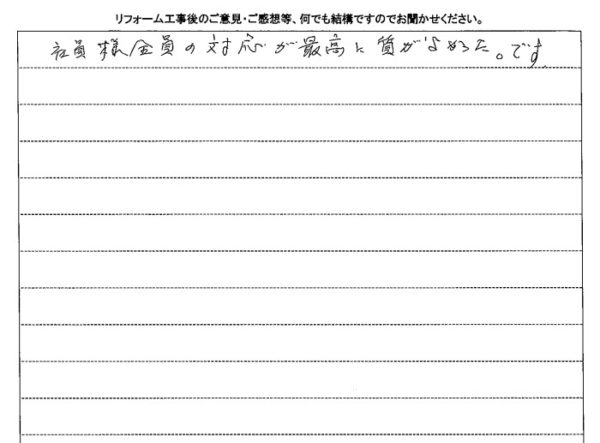 リフォーム工事後のご意見・ご感想等、何でも結構ですのでお聞かせください。
社員様全員の対応が最高に質がよかった。です